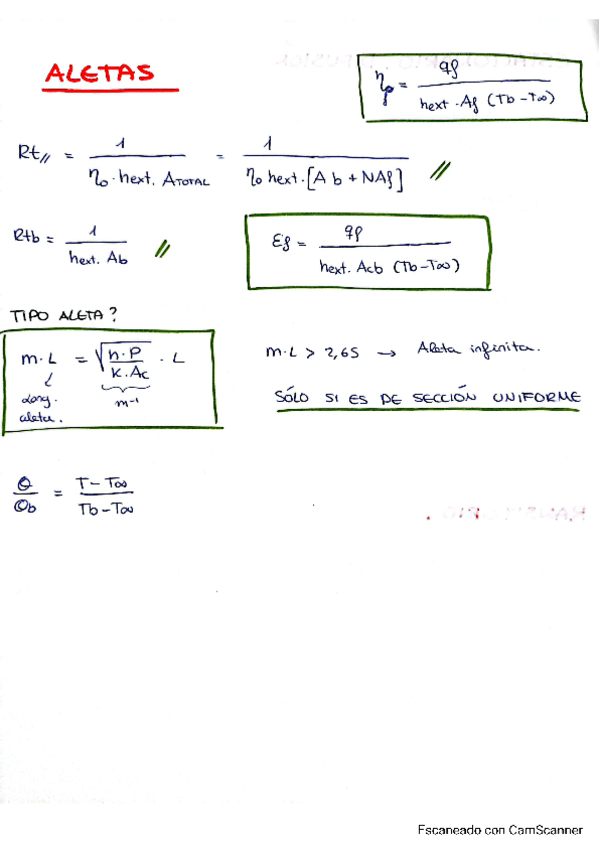 ALETAS
ηf = qf / hext · Af (Tb - T∞)
Rt// = 1 / ηo · hext. ATOTAL = 1 / ηo hext · [Ab + NAf] //
Rtb = 1 / hext. Ab //
Ɛf = qf / hext. Acb (Tb - T∞)
TIPO ALETA?
m·L = √(h·P / K·Ac) · L
Long. aleta.
m⁻¹
m·L > 2,65 → Aleta infinita.
SÓLO SI ES DE SECCIÓN UNIFORME
Θ / Θb = T - T∞ / Tb - T∞
Escaneado con CamScanner